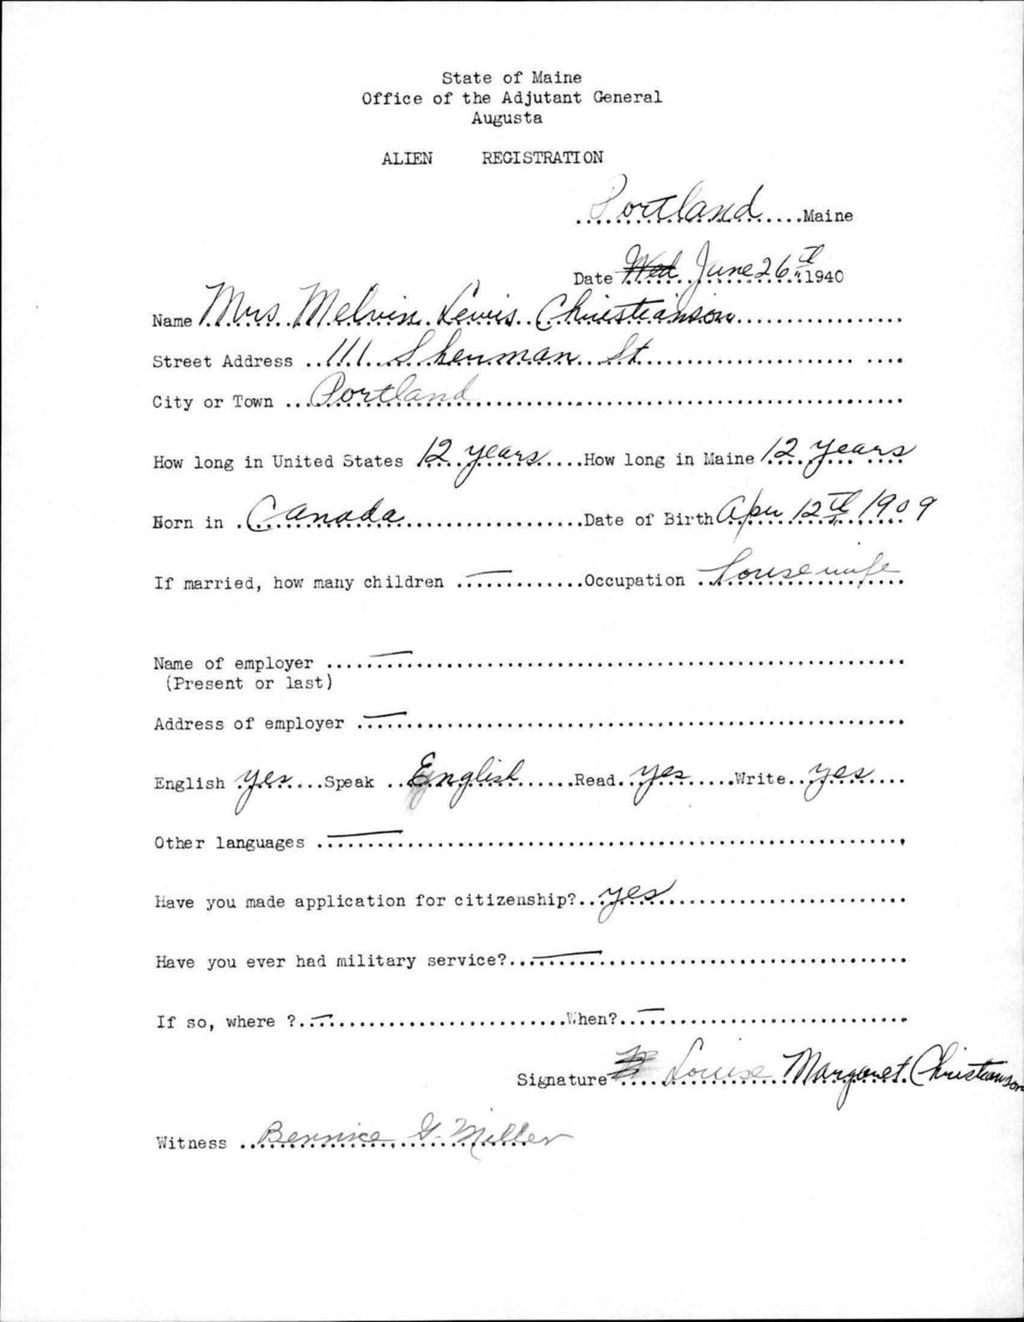 State of Maine
Office of the Adjutant General
Augusta
ALIEN REGISTRATION
Portland Maine
Date Wed June 26th 1940
Name Mrs Melvin Lewis Christianson
Street Address 111 Sherman St
City or Town Portland
How long in United States 12 years How long in Maine 12 years
Born in Canada Date of Birth Apr 12th 1909
If married, how many children — Occupation Housewife
Name of employer —
(Present or last)
Address of employer —
English yes Speak English Read yes Write yes
Other languages —
Have you made application for citizenship? yes
Have you ever had military service? —
If so, where ? — When? —
Signature Louise Margaret Christianson
Witness Bernice G. Miller